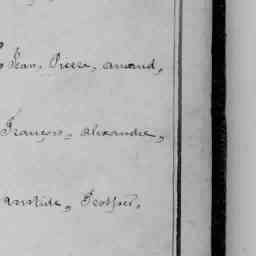 Jean, Pierre, amand,
François, alexandre,
aristide, Prosper,